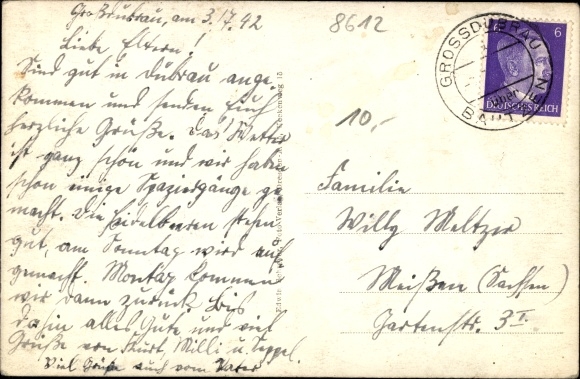 Großdubrau, am 3.7.42
Liebe Eltern!
Sind gut in Dubrau ange-
kommen und senden Euch
herzliche Grüße. Das Wetter
ist ganz schön und wir haben
schon einige Spaziergänge ge-
macht. Die Heidelbeeren stehen
gut, am Sonntag wird auf
gemacht. Montag kommen
wir dann zurück. Bis
dahin alles Gute und viel
Grüße von Kurt, Milli u. Seppel.
Viel Grüße auch vom Vater
8612
10,-
GROSSDUBRAU
über
BAUTZEN
6
DEUTSCHES REICH
Familie
Willy Meltzer
Meißen (Sachsen)
Gartenstr. 3 I